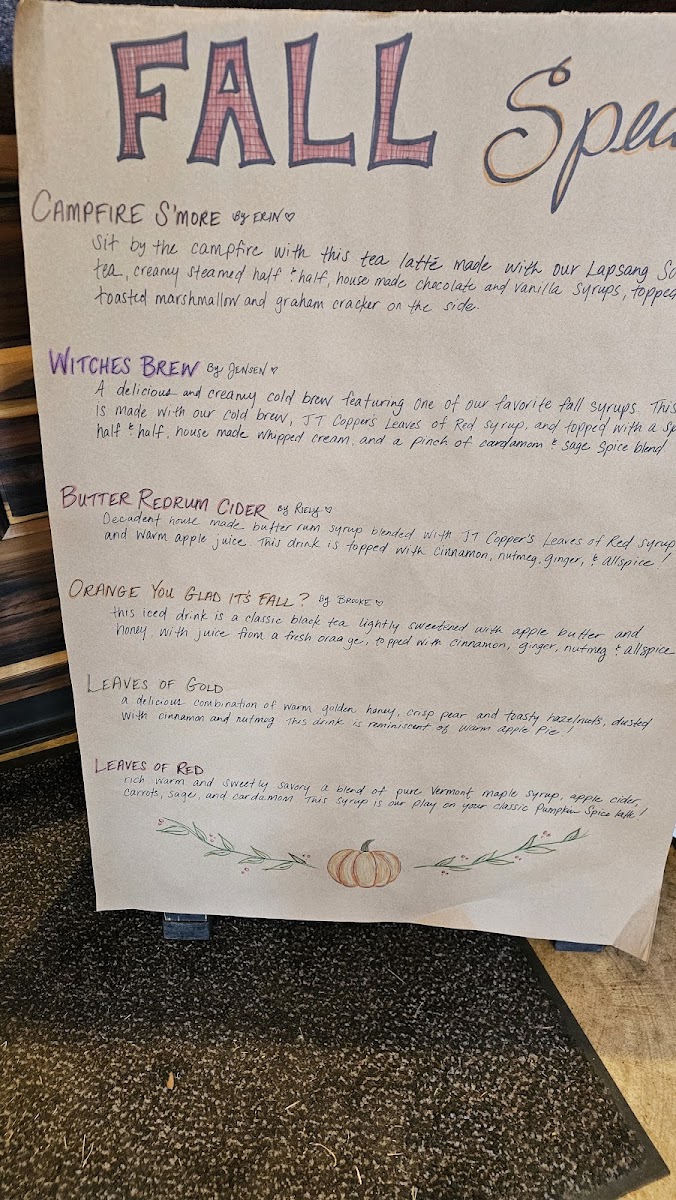 FALL Spec
CAMPFIRE S'MORE By ERIN
Sit by the campfire with this tea latté made with our Lapsang So
tea, creamy steamed half & half, house made chocolate and vanilla syrups, topped
toasted marshmallow and graham cracker on the side.
WITCHES BREW By JENSEN
A delicious and creamy cold brew featuring one of our favorite fall syrups. This
is made with our cold brew, JT Copper's Leaves of Red syrup, and topped with a sp
half & half, house made whipped cream, and a pinch of cardamom & sage spice blend
BUTTER REDRUM CIDER By RIELY
Decadent house made butter rum syrup blended with JT Copper's Leaves of Red syrup
and warm apple juice. This drink is topped with cinnamon, nutmeg, ginger, & allspice!
ORANGE YOU GLAD IT'S FALL? By BROOKE
this iced drink is a classic black tea lightly sweetened with apple butter and
honey. with juice from a fresh orange, topped with cinnamon, ginger, nutmeg & allspice
LEAVES OF GOLD
a delicious combination of warm golden honey, crisp pear and toasty hazelnuts, dusted
with cinnamon and nutmeg. This drink is reminiscent of warm apple Pie!
LEAVES OF RED
rich warm and sweetly savory a blend of pure Vermont maple syrup, apple cider,
carrots, sage, and cardamom. This syrup is our play on your classic Pumpkin Spice latte!